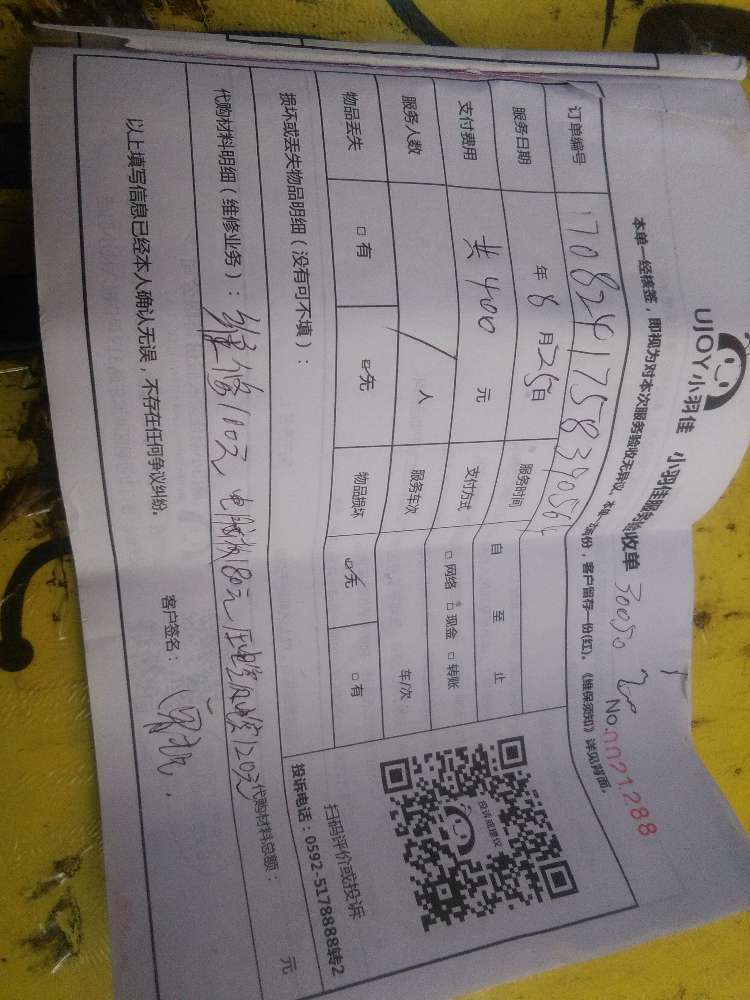 UJOY小羽佳 小羽佳服务验收单 30050
No.0021288
本单一经核签，即视为对本次服务验收无异议。本单 份，客户留存一份(红)。《维保须知》详见背面。
订单编号 170824175839056
服务日期 年8月25日 服务时间 自 至 止
支付费用 共400 元 支付方式 □网络 □现金 □转账
服务人数 人 服务车次 车/次
物品丢失 □有 □无 物品损坏 □无 □有
损坏或丢失物品明细（没有可不填）：
代购材料明细（维修业务）：维修100元 电 180元 压 120元 代购材料总额： 元
以上填写信息已经本人确认无误，不存在任何争议纠纷。 客户签名：
投诉或建议
扫码评价或投诉
投诉电话：0592-5178888转2